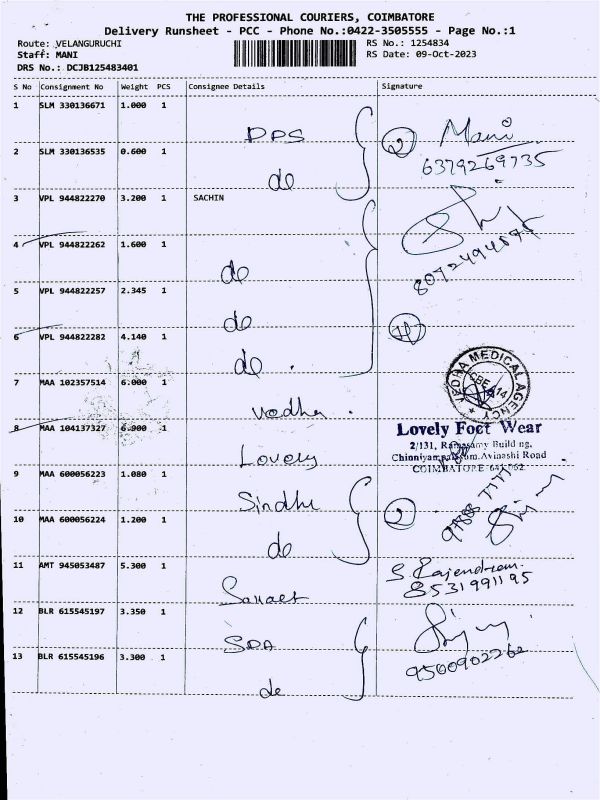 THE PROFESSIONAL COURIERS, COIMBATORE
Delivery Runsheet - PCC - Phone No.:0422-3505555 - Page No.:1
Route: VELANGURUCHI RS No.: 1254834
Staff: MANI RS Date: 09-Oct-2023
DRS No.: DCJB125483401
S No Consignment No Weight PCS Consignee Details Signature
1 SLM 330136671 1.000 1
DPS ② Mani
2 SLM 330136535 0.600 1 6379269735
do
3 VPL 944822270 3.200 1 SACHIN
4 VPL 944822262 1.600 1
do
5 VPL 944822257 2.345 1
do
④
6 VPL 944822282 4.140 1
do
VEDHA MEDICAL AGENCY
CBE 14
7 MAA 102357514 6.000 1
vedha
8 MAA 104137327 6.900 1
Lovely Foot Wear
2/131, Ramasamy Building,
Chinniyampalayam, Avinashi Road
COIMBATORE-641 062
Lovely
9 MAA 600056223 1.080 1
Sindhi
②
10 MAA 600056224 1.200 1
do
11 AMT 945053487 5.300 1
S. Rajendran.
8531991195
12 BLR 615545197 3.350 1
SDA
13 BLR 615545196 3.300 1
9500902262
do